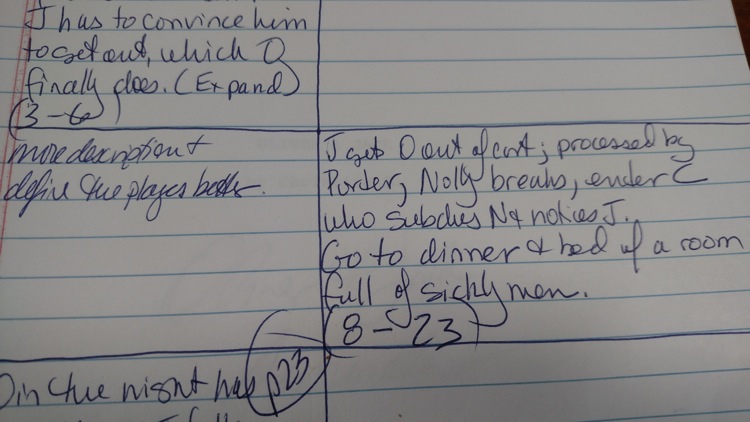 J has to convince him
to get out, which O
finally does. (Expand)
(3-6)
more description &
define the players better.
J gets O out of cart; processed by
Porter, Nolly breaks, enter C
who subdies N & notices J.
Go to dinner & bed of a room
full of sickly men.
(8-23)
O in the night has p23